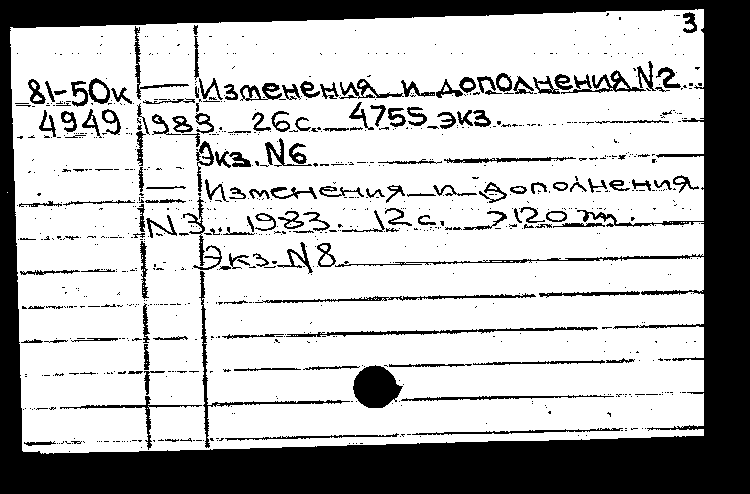 3.
81-50к — Изменения и дополнения N2..
4949 1983. 26с. 4755 экз.
Экз. N6
— Изменения и дополнения
N3... 1983. 12с.
Экз. N8.